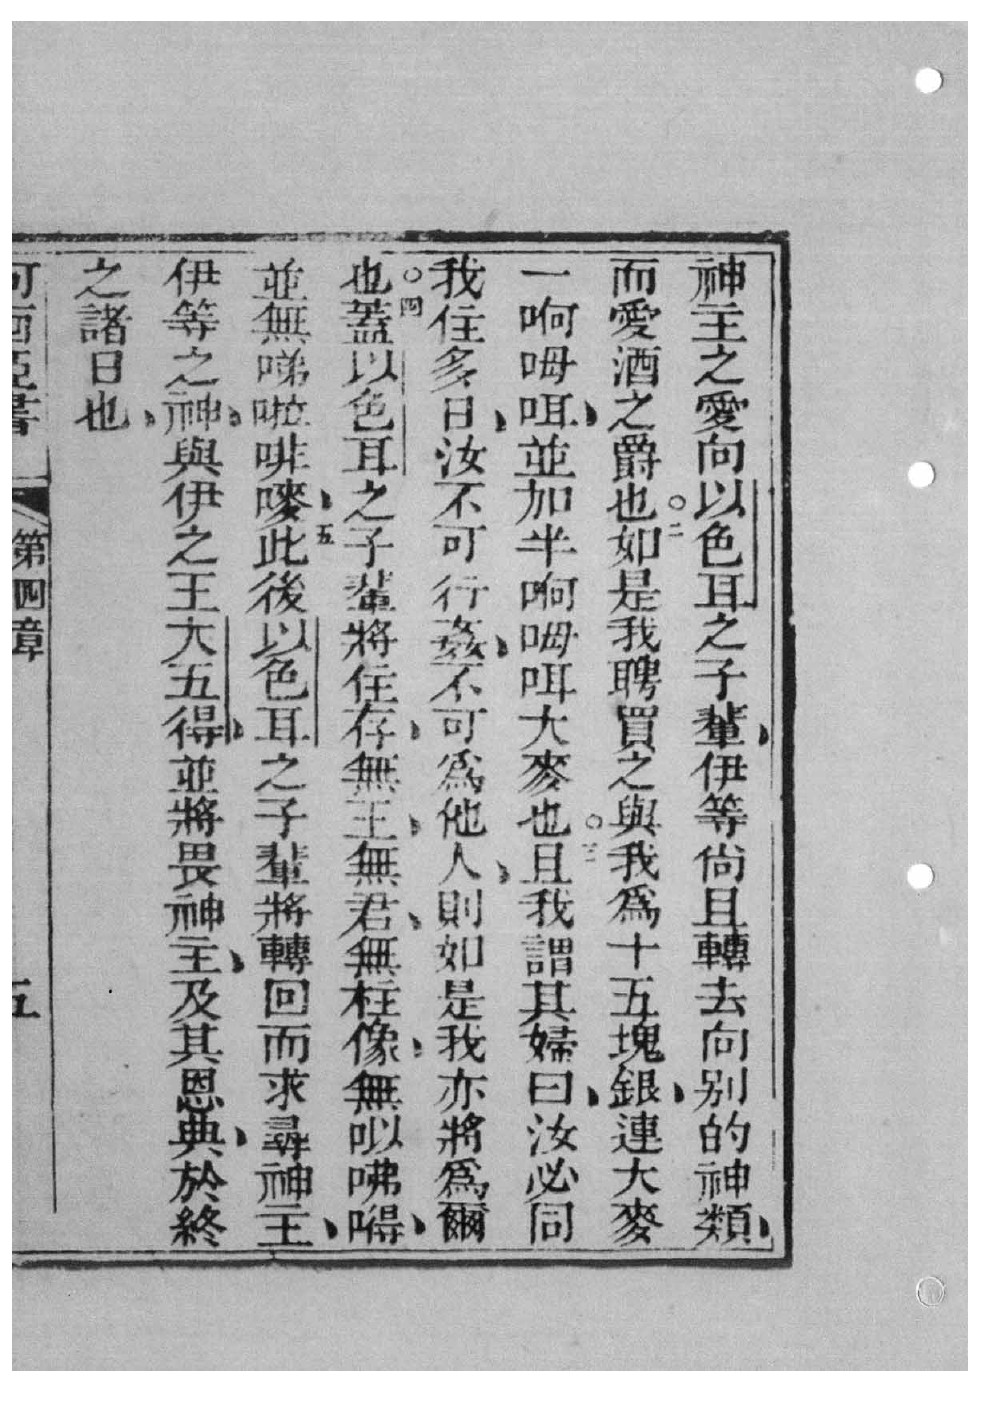 神主之愛向以色耳之子輩、伊等尙且轉去向别的神類、
而愛酒之爵也○二如是我聘買之與我爲十五塊銀、連大麥
一㖿㖼咡、並加半㖿㖼咡大麥也○三且我謂其婦曰、汝必同
我住多日、汝不可行姦、不可爲他人、則如是我亦將爲爾
也○四蓋以色耳之子輩將住存、無王、無君、無柱像、無㕥咈㘆、
並無㖒啦啡嘜、五此後以色耳之子輩將轉回而求尋神主、
伊等之神、與伊之王大五得、並將畏神主、及其恩典、於終
之諸日也、
書 第四章 五